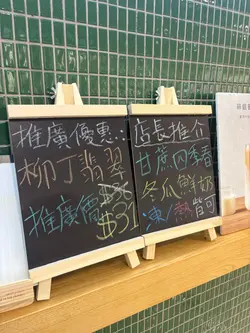 推廣優惠:
柳丁翡翠
推廣價 $31
店長推介
甘蔗四季春
冬瓜鮮奶
凍/熱皆可